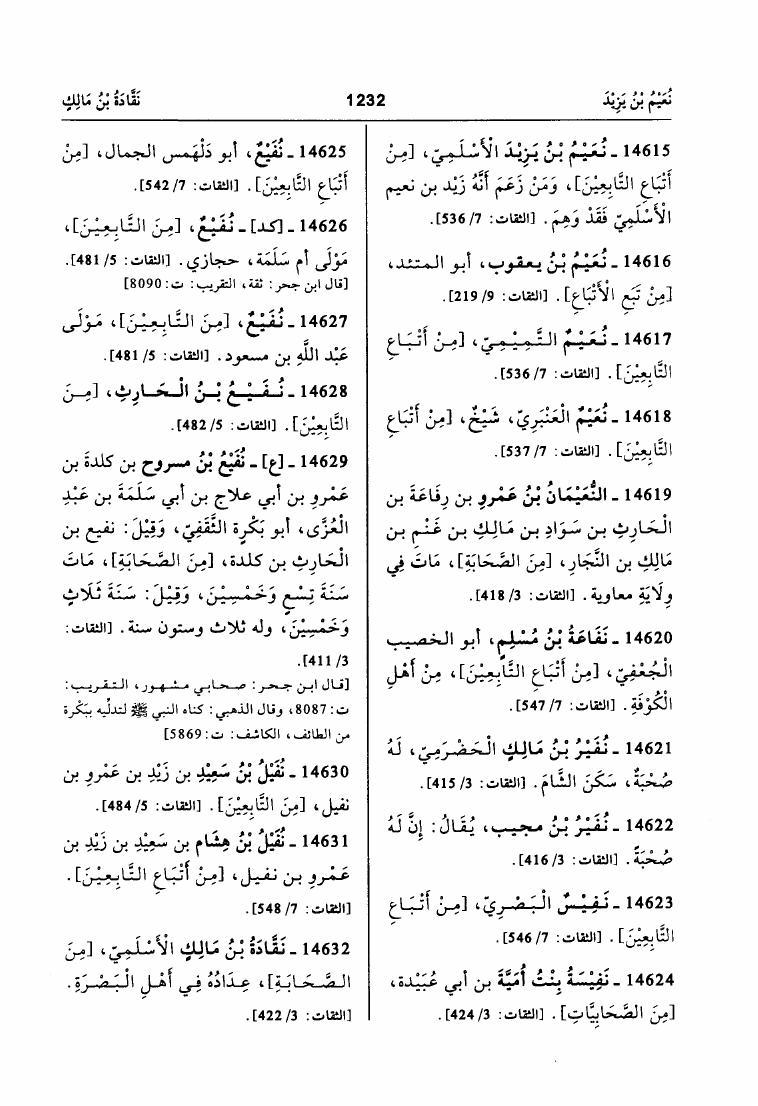 نُعَيْمُ بْنُ يَزِيْدَ
1232
نَقَّادَةُ بْنُ مَالِكٍ
14615 ـ نُعَيْمُ بْنُ يَزِيْدَ الأَسْلَمِيّ، [مِنْ
أَتْبَاعِ التَّابِعِيْنَ]، وَمَنْ زَعَمَ أَنَّهُ زَيْد بن نعيم
الأَسْلَمِيّ فَقَدْ وَهِمَ. [الثقات: 7/ 536].
14616 ـ نُعَيْمُ بْنُ يعقوب، أبو المتئد،
[مِنْ تَبَعِ الأَتْبَاعِ]. [الثقات: 9/ 219].
14617 ـ نُعَيْمٌ التَّمِيْمِيّ، [مِنْ أَتْبَاعِ
التَّابِعِيْنَ]. [الثقات: 7/ 536].
14618 ـ نُعَيْمٌ الْعَنْبَرِيّ، شَيْخٌ، [مِنْ أَتْبَاعِ
التَّابِعِيْنَ]. [الثقات: 7/ 537].
14619 ـ النُّعَيْمَانُ بْنُ عَمْرِو بن رِفَاعَةَ بن
الْحَارِثِ بن سَوَادِ بن مَالِكِ بن غَنْمِ بن
مَالِكِ بن النَّجَارِ، [مِنَ الصَّحَابَةِ]، مَاتَ فِي
وِلَايَةِ معاوية. [الثقات: 3/ 418].
14620 ـ نَفَاعَةُ بْنُ مُسْلِمٍ، أبو الخصيب
الْجُعْفِيّ، [مِنْ أَتْبَاعِ التَّابِعِيْنَ]، مِنْ أَهْلِ
الْكُوْفَةِ. [الثقات: 7/ 547].
14621 ـ نُفَيْرُ بْنُ مَالِكٍ الْحَضْرَمِيّ، لَهُ
صُحْبَةٌ، سَكَنَ الشَّامَ. [الثقات: 3/ 415].
14622 ـ نُفَيْرُ بْنُ مجيب، يُقَالُ: إِنَّ لَهُ
صُحْبَةً. [الثقات: 3/ 416].
14623 ـ نَفِيْسٌ الْبَصْرِيّ، [مِنْ أَتْبَاعِ
التَّابِعِيْنَ]. [الثقات: 7/ 546].
14624 ـ نَفِيْسَةُ بِنْتُ أُمَيَّةَ بن أبي عُبَيْدة،
[مِنَ الصَّحَابِيَّاتِ]. [الثقات: 3/ 424].
14625 ـ نُفَيْعٌ، أبو دَلْهَمس الجمال، [مِنْ
أَتْبَاعِ التَّابِعِيْنَ]. [الثقات: 7/ 542].
14626 ـ [كد] ـ نُفَيْعٌ، [مِنَ التَّابِعِيْنَ]،
مَوْلَى أم سَلَمَة، حجازي. [الثقات: 5/ 481].
[قال ابن حجر: ثقة، التقريب: ت: 8090]
14627 ـ نُفَيْعٌ، [مِنَ التَّابِعِيْنَ]، مَوْلَى
عَبْد اللَّهِ بن مسعود. [الثقات: 5/ 481].
14628 ـ نُفَيْعُ بْنُ الْحَارِثِ، [مِنَ
التَّابِعِيْنَ]. [الثقات: 5/ 482].
14629 ـ [ع] ـ نُفَيْعُ بْنُ مسروح بن كلدةَ بن
عَمْرِو بن أبي علاج بن أبي سَلَمَةَ بن عَبْدِ
الْعُزَّى، أبو بَكْرة الثَّقَفِيّ، وَقِيْلَ: نفيع بن
الْحَارِثِ بن كلدة، [مِنَ الصَّحَابَةِ]، مَاتَ
سَنَةَ تِسْعٍ وَخَمْسِيْنَ، وَقِيْلَ: سَنَةَ ثَلَاثٍ
وَخَمْسِيْنَ، وله ثلاث وستون سنة. [الثقات:
3/ 411].
[قال ابن حجر: صحابي مشهور، التقريب:
ت: 8087، وقال الذهبي: كناه النبي ﷺ لتدليه ببَكْرة
من الطائف، الكاشف: ت: 5869]
14630 ـ نُفَيْلُ بْنُ سَعِيْدِ بن زَيْدِ بن عَمْرِو بن
نفيل، [مِنَ التَّابِعِيْنَ]. [الثقات: 5/ 484].
14631 ـ نُفَيْلُ بْنُ هِشَامِ بن سَعِيْدِ بن زَيْدِ بن
عَمْرِو بن نفيل، [مِنْ أَتْبَاعِ التَّابِعِيْنَ].
[الثقات: 7/ 548].
14632 ـ نَقَّادَةُ بْنُ مَالِكٍ الأَسْلَمِيّ، [مِنَ
الصَّحَابَةِ]، عِدَادُهُ فِي أَهْلِ الْبَصْرَةِ.
[الثقات: 3/ 422].